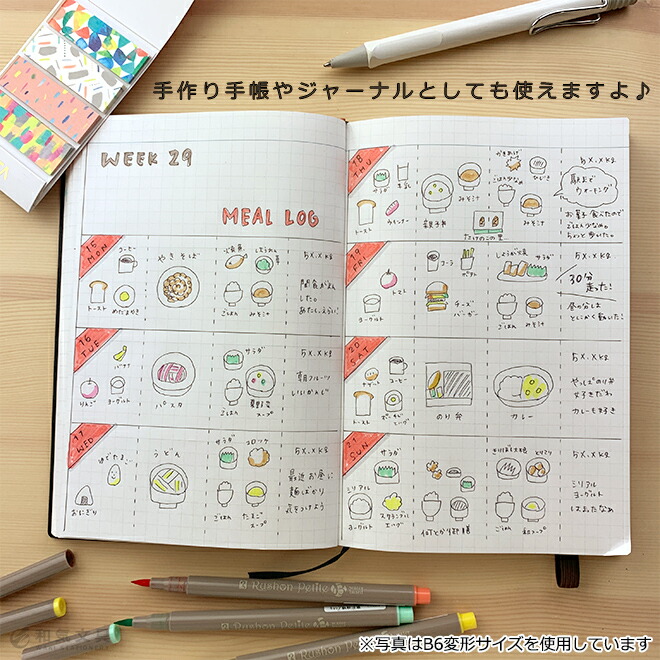 手作り手帳やジャーナルとしても使えますよ♪
WEEK 29
MEAL LOG
15 MON
コーヒー
トースト
めだまやき
やきそば
ごはん
みそ汁
5X.Xkg
間食がまん
した。
あたし、えらい!
16 TUE
バナナ
りんご
ヨーグルト
パスタ
サラダ
ごはん
スープ
5X.Xkg
朝フルーツ
いいかんじ
17 WED
ゆでたまご
おにぎり
うどん
サラダ
コロッケ
ごはん
たまご
スープ
5X.Xkg
最近お昼に
麺ばかり
気をつけよう
18 THU
サラダ
牛乳
トースト
ウインナー
親子丼
みそ汁
たけのこの里
かきあげ
ごはん少なめ
ひじき
みそ汁
5X.Xkg
駅まで
ウォーキング
お菓子食べたので
ごはん少なめ。
ちょっと歩いた。
19 FRI
トマト
ヨーグルト
コーラ
ポテト
チーズ
バーガー
しょうが焼
サラダ
ごはん
みそ汁
5X.Xkg
30分
走った!
昼の分は
とにかく動いた!
20 SAT
サラダ
コーヒー
トースト
のり弁
カレー
5X.Xkg
やっぱのり弁
女子きだわ
カレーも好き
21 SUN
サラダ
シリアル
ヨーグルト
スクランブル
エッグ
ごはん
和スープ
5X.Xkg
シリアル
ヨーグルト
はまったなあ
Rushon Petite
Rushon Petite
和気文具
※写真はB6変形サイズを使用しています